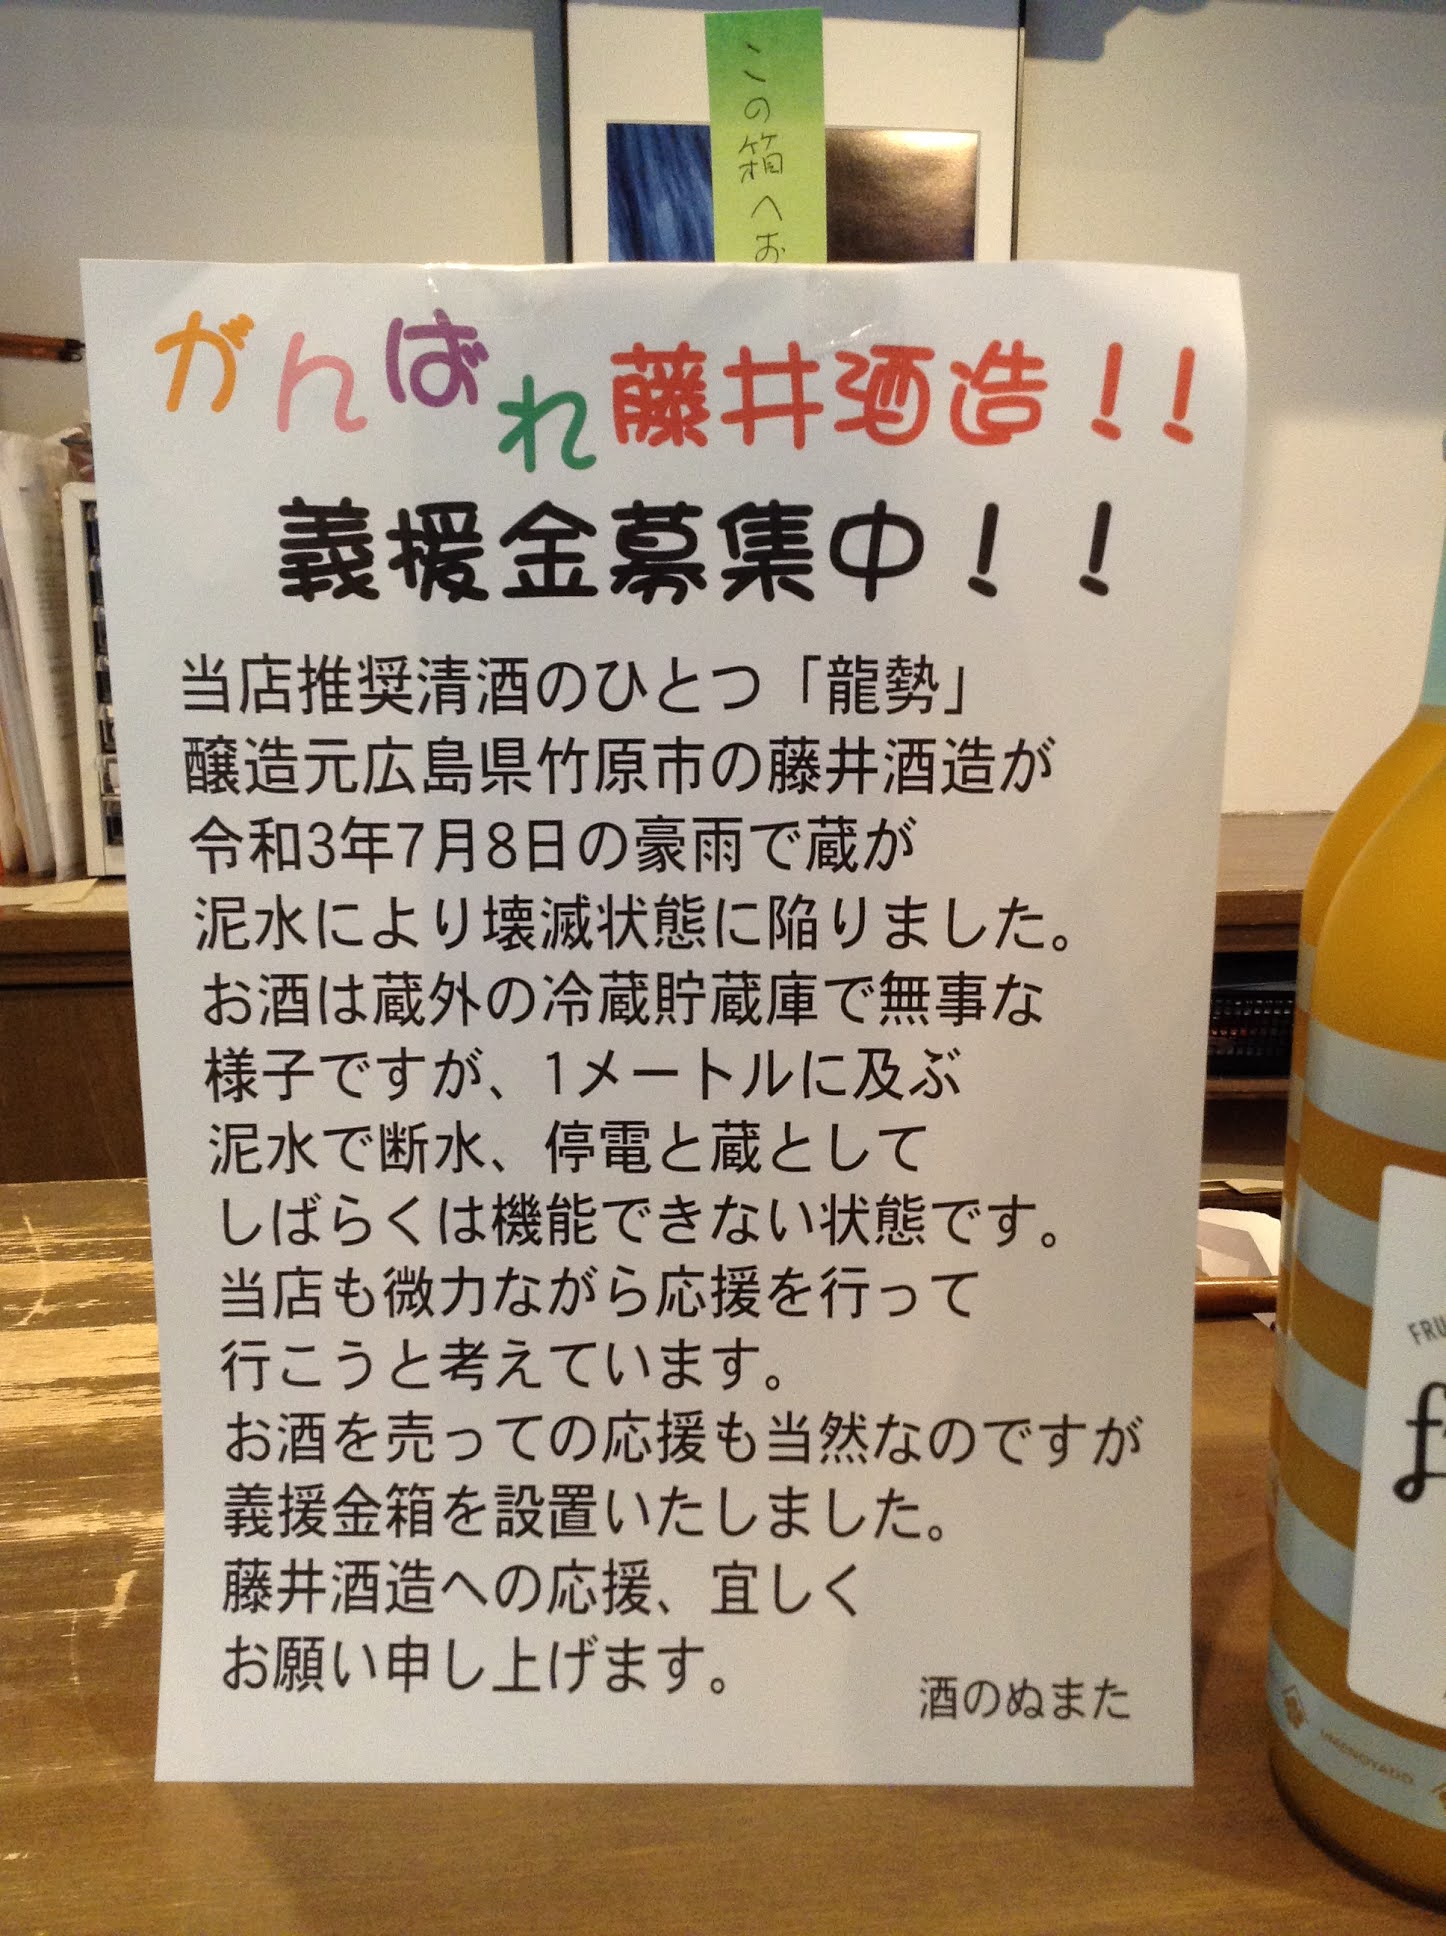 この箱へお
がんばれ藤井酒造！！
義援金募集中！！
当店推奨清酒のひとつ「龍勢」
醸造元広島県竹原市の藤井酒造が
令和3年7月8日の豪雨で蔵が
泥水により壊滅状態に陥りました。
お酒は蔵外の冷蔵貯蔵庫で無事な
様子ですが、1メートルに及ぶ
泥水で断水、停電と蔵として
しばらくは機能できない状態です。
当店も微力ながら応援を行って
行こうと考えています。
お酒を売っての応援も当然なのですが
義援金箱を設置いたしました。
藤井酒造への応援、宜しく
お願い申し上げます。
酒のぬまた
FRU
UMENOYADO